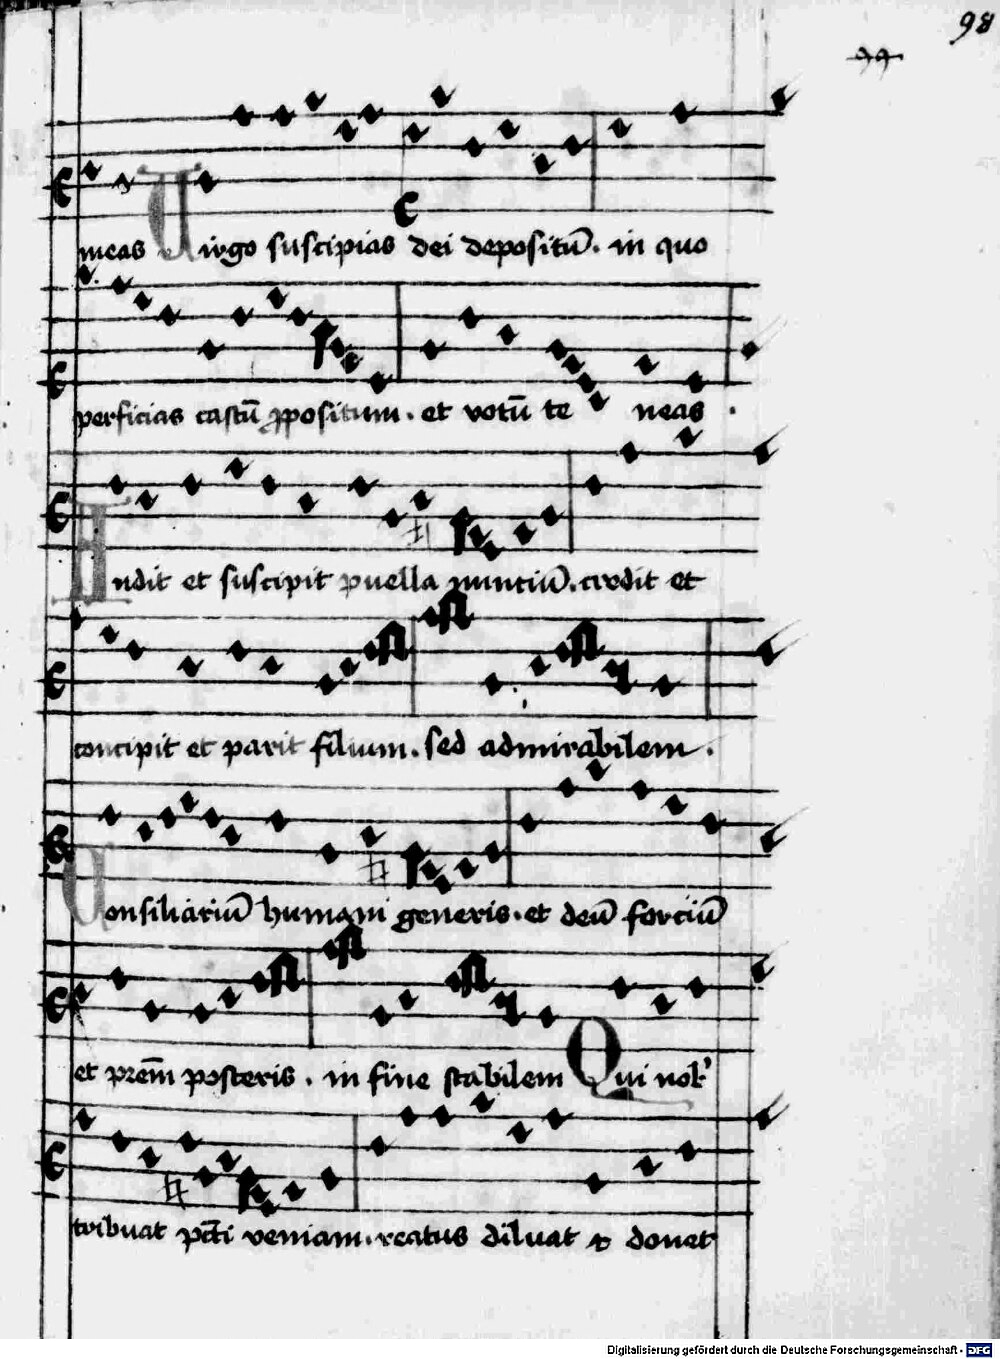 98
99
meas Virgo suscipias dei depositū. in quo
perficias castū ꝓpositum. et votū te neas.
Audit et suscipit puella nuntiū. credit et
concipit et parit filium. sed admirabilem.
Consiliariū humani generis. et deū fortiū
et prēm posteris. in fine stabilem Qui nob'
tribuat pcti veniam. reatus diluat et donet
Digitalisierung gefördert durch die Deutsche Forschungsgemeinschaft - DFG